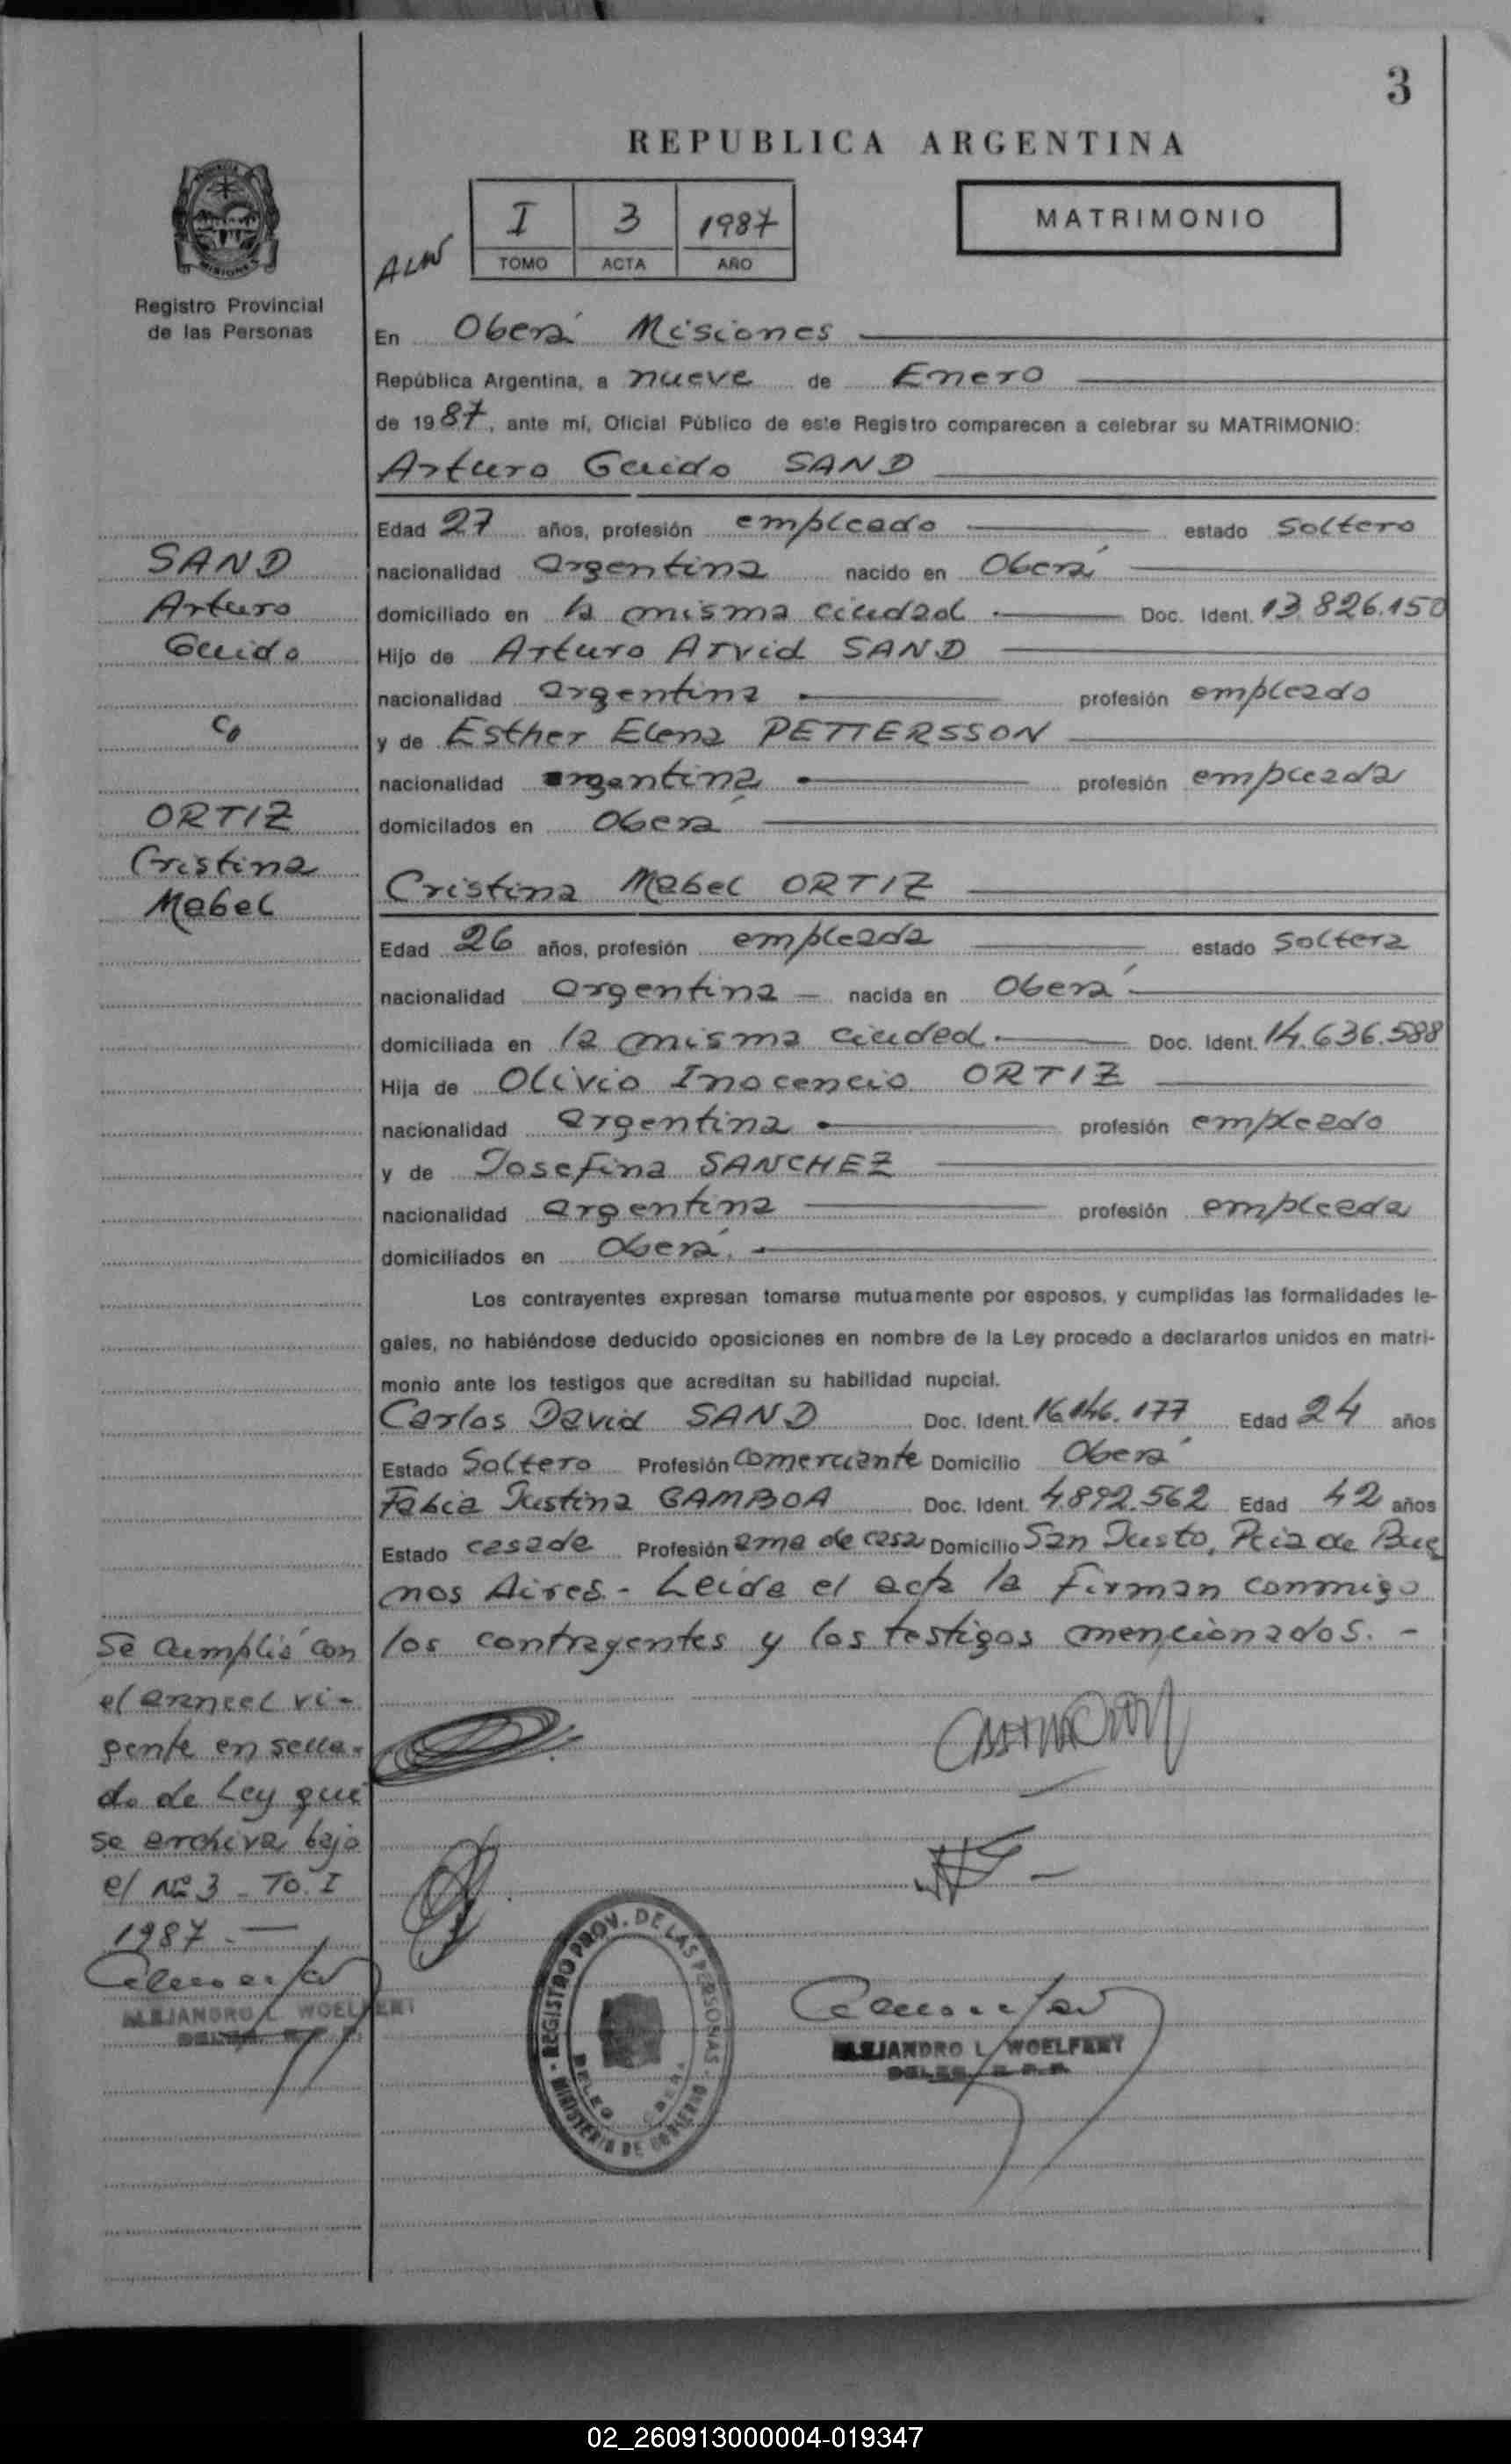 3
REPUBLICA ARGENTINA
I 3 1987
TOMO ACTA AÑO
MATRIMONIO
Registro Provincial
de las Personas
En Oberá Misiones
República Argentina, a nueve de Enero
de 1987, ante mí, Oficial Público de este Registro comparecen a celebrar su MATRIMONIO:
Arturo Guido SAND
Edad 27 años, profesión empleado estado soltero
nacionalidad argentina nacido en Oberá
domiciliado en la misma ciudad.- Doc. Ident. 13.826.150
Hijo de Arturo Arvid SAND
nacionalidad argentina profesión empleado
y de Esther Elena PETTERSSON
nacionalidad argentina profesión empleada
domicilados en Oberá
SAND
Arturo
Guido
c/
ORTIZ
Cristina
Mabel
Cristina Mabel ORTIZ
Edad 26 años, profesión empleada estado soltera
nacionalidad argentina - nacida en Oberá
domiciliada en la misma ciudad.- Doc. Ident. 14.636.588
Hija de Olivio Inocencio ORTIZ
nacionalidad argentina profesión empleado
y de Josefina SANCHEZ
nacionalidad argentina profesión empleada
domiciliados en Oberá.
Los contrayentes expresan tomarse mutuamente por esposos, y cumplidas las formalidades le-
gales, no habiéndose deducido oposiciones en nombre de la Ley procedo a declararlos unidos en matri-
monio ante los testigos que acreditan su habilidad nupcial.
Carlos David SAND Doc. Ident. 16.146.177 Edad 24 años
Estado Soltero Profesión comerciante Domicilio Oberá
Fabia Justina GAMBOA Doc. Ident. 4.892.562 Edad 42 años
Estado casada Profesión ama de casa Domicilio San Justo, Pcia de Bue
nos Aires.- Leida el acta la firman conmigo
los contrayentes y los testigos mencionados. -
Se cumplió con
el arancel vi-
gente en sella-
do de Ley que
se archiva bajo
el Nº 3 - To. I
1987.-
ALEJANDRO L. WOELFERT
REGISTRO PROV. DE LAS PERSONAS
MINISTERIO DE GOBIERNO
ALEJANDRO L. WOELFERT
02_260913000004-019347